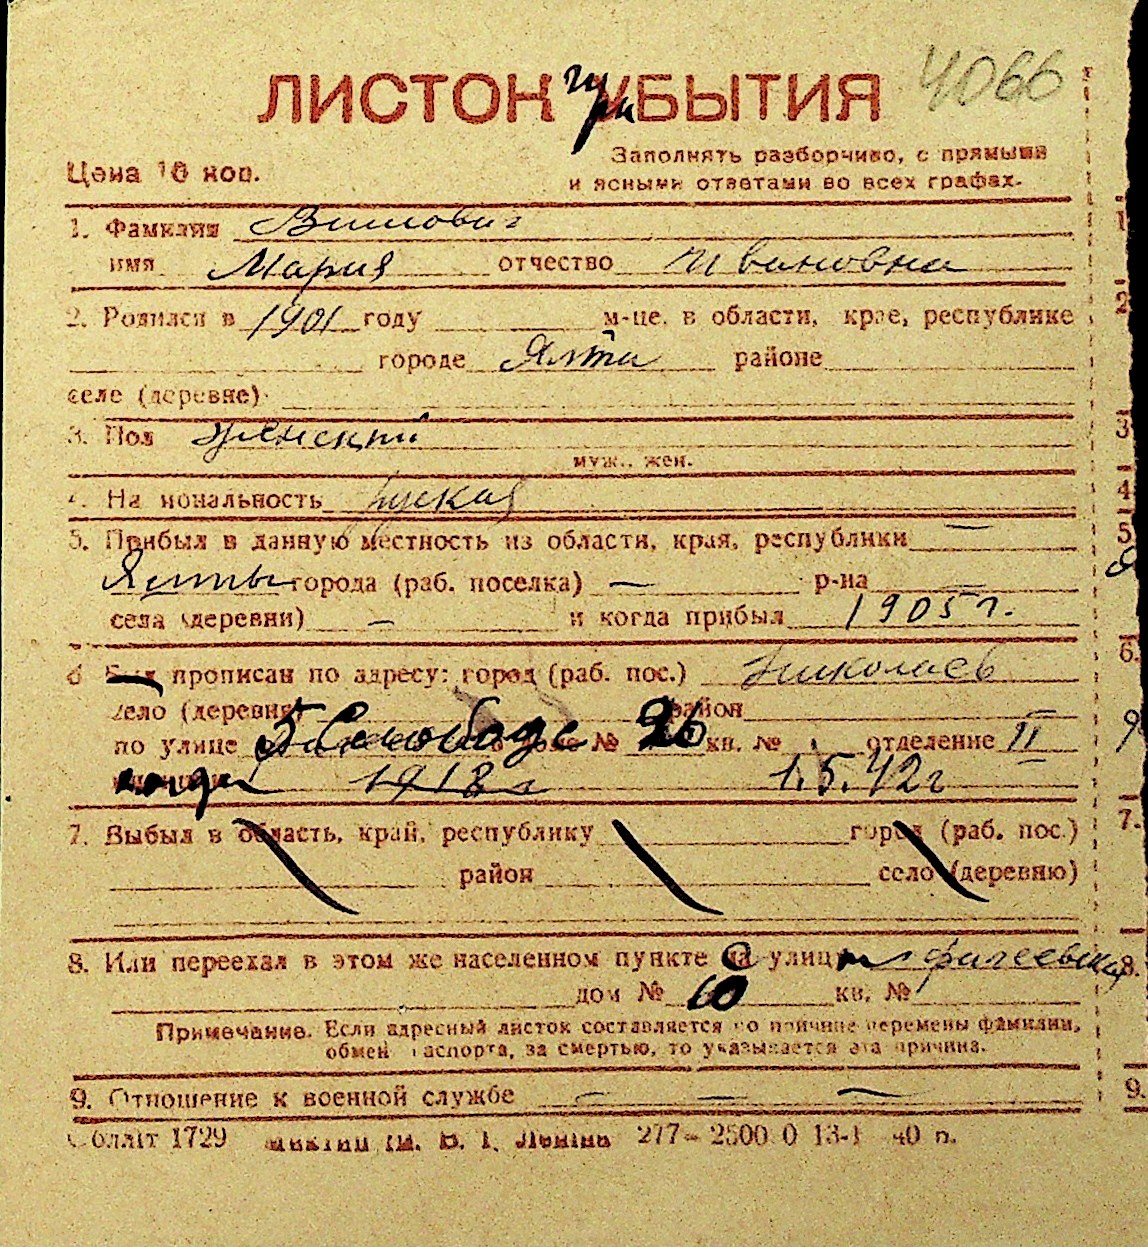 4066
ЛИСТОК при БЫТИЯ
Цена 10 коп.
Заполнять разборчиво, с прямыми
и ясными ответами во всех графах.
1. Фамилия
имя Мария отчество Ивановна
2. Родился в 1901 году м-це, в области, крае, республике
городе Ялта районе
селе (деревне)
3. Пол женский
муж., жен.
4. Национальность руская
5. Прибыл в данную местность из области, края, республики —
Ялты города (раб. поселка) — р-на
села (деревни) — и когда прибыл 1905 г.
6 Был прописан по адресу: город (раб. пос.) Николаев
село (деревня) район
по улице Слободс № 26 кв. № отделение II
когда 1918 г 1.5.42 г
7. Выбыл в область, край, республику город (раб. пос.)
район село (деревню)
8. Или переехал в этом же населенном пункте с улицы
дом № 10 кв. №
Примечание. Если адресный листок составляется по причине перемены фамилии,
обмен паспорта, за смертью, то указывается эта причина.
9. Отношение к военной службе — — —
Обліт 1729 ім. В. І. Леніна 277— 2500 0 13-I 40 п.